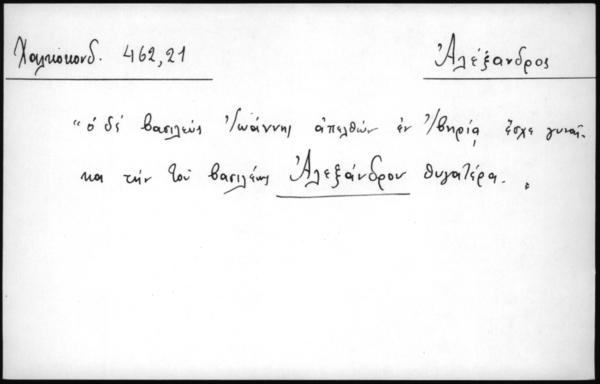 Χαλκοκονδ. 462,21
Ἀλέξανδρος
"ὁ δέ βασιλεύς Ἰωάννης ἀπελθών ἐν Ἰβηρίᾳ ἔσχε γυναῖ-
κα τήν τοῦ βασιλέως Ἀλεξάνδρου θυγατέρα.